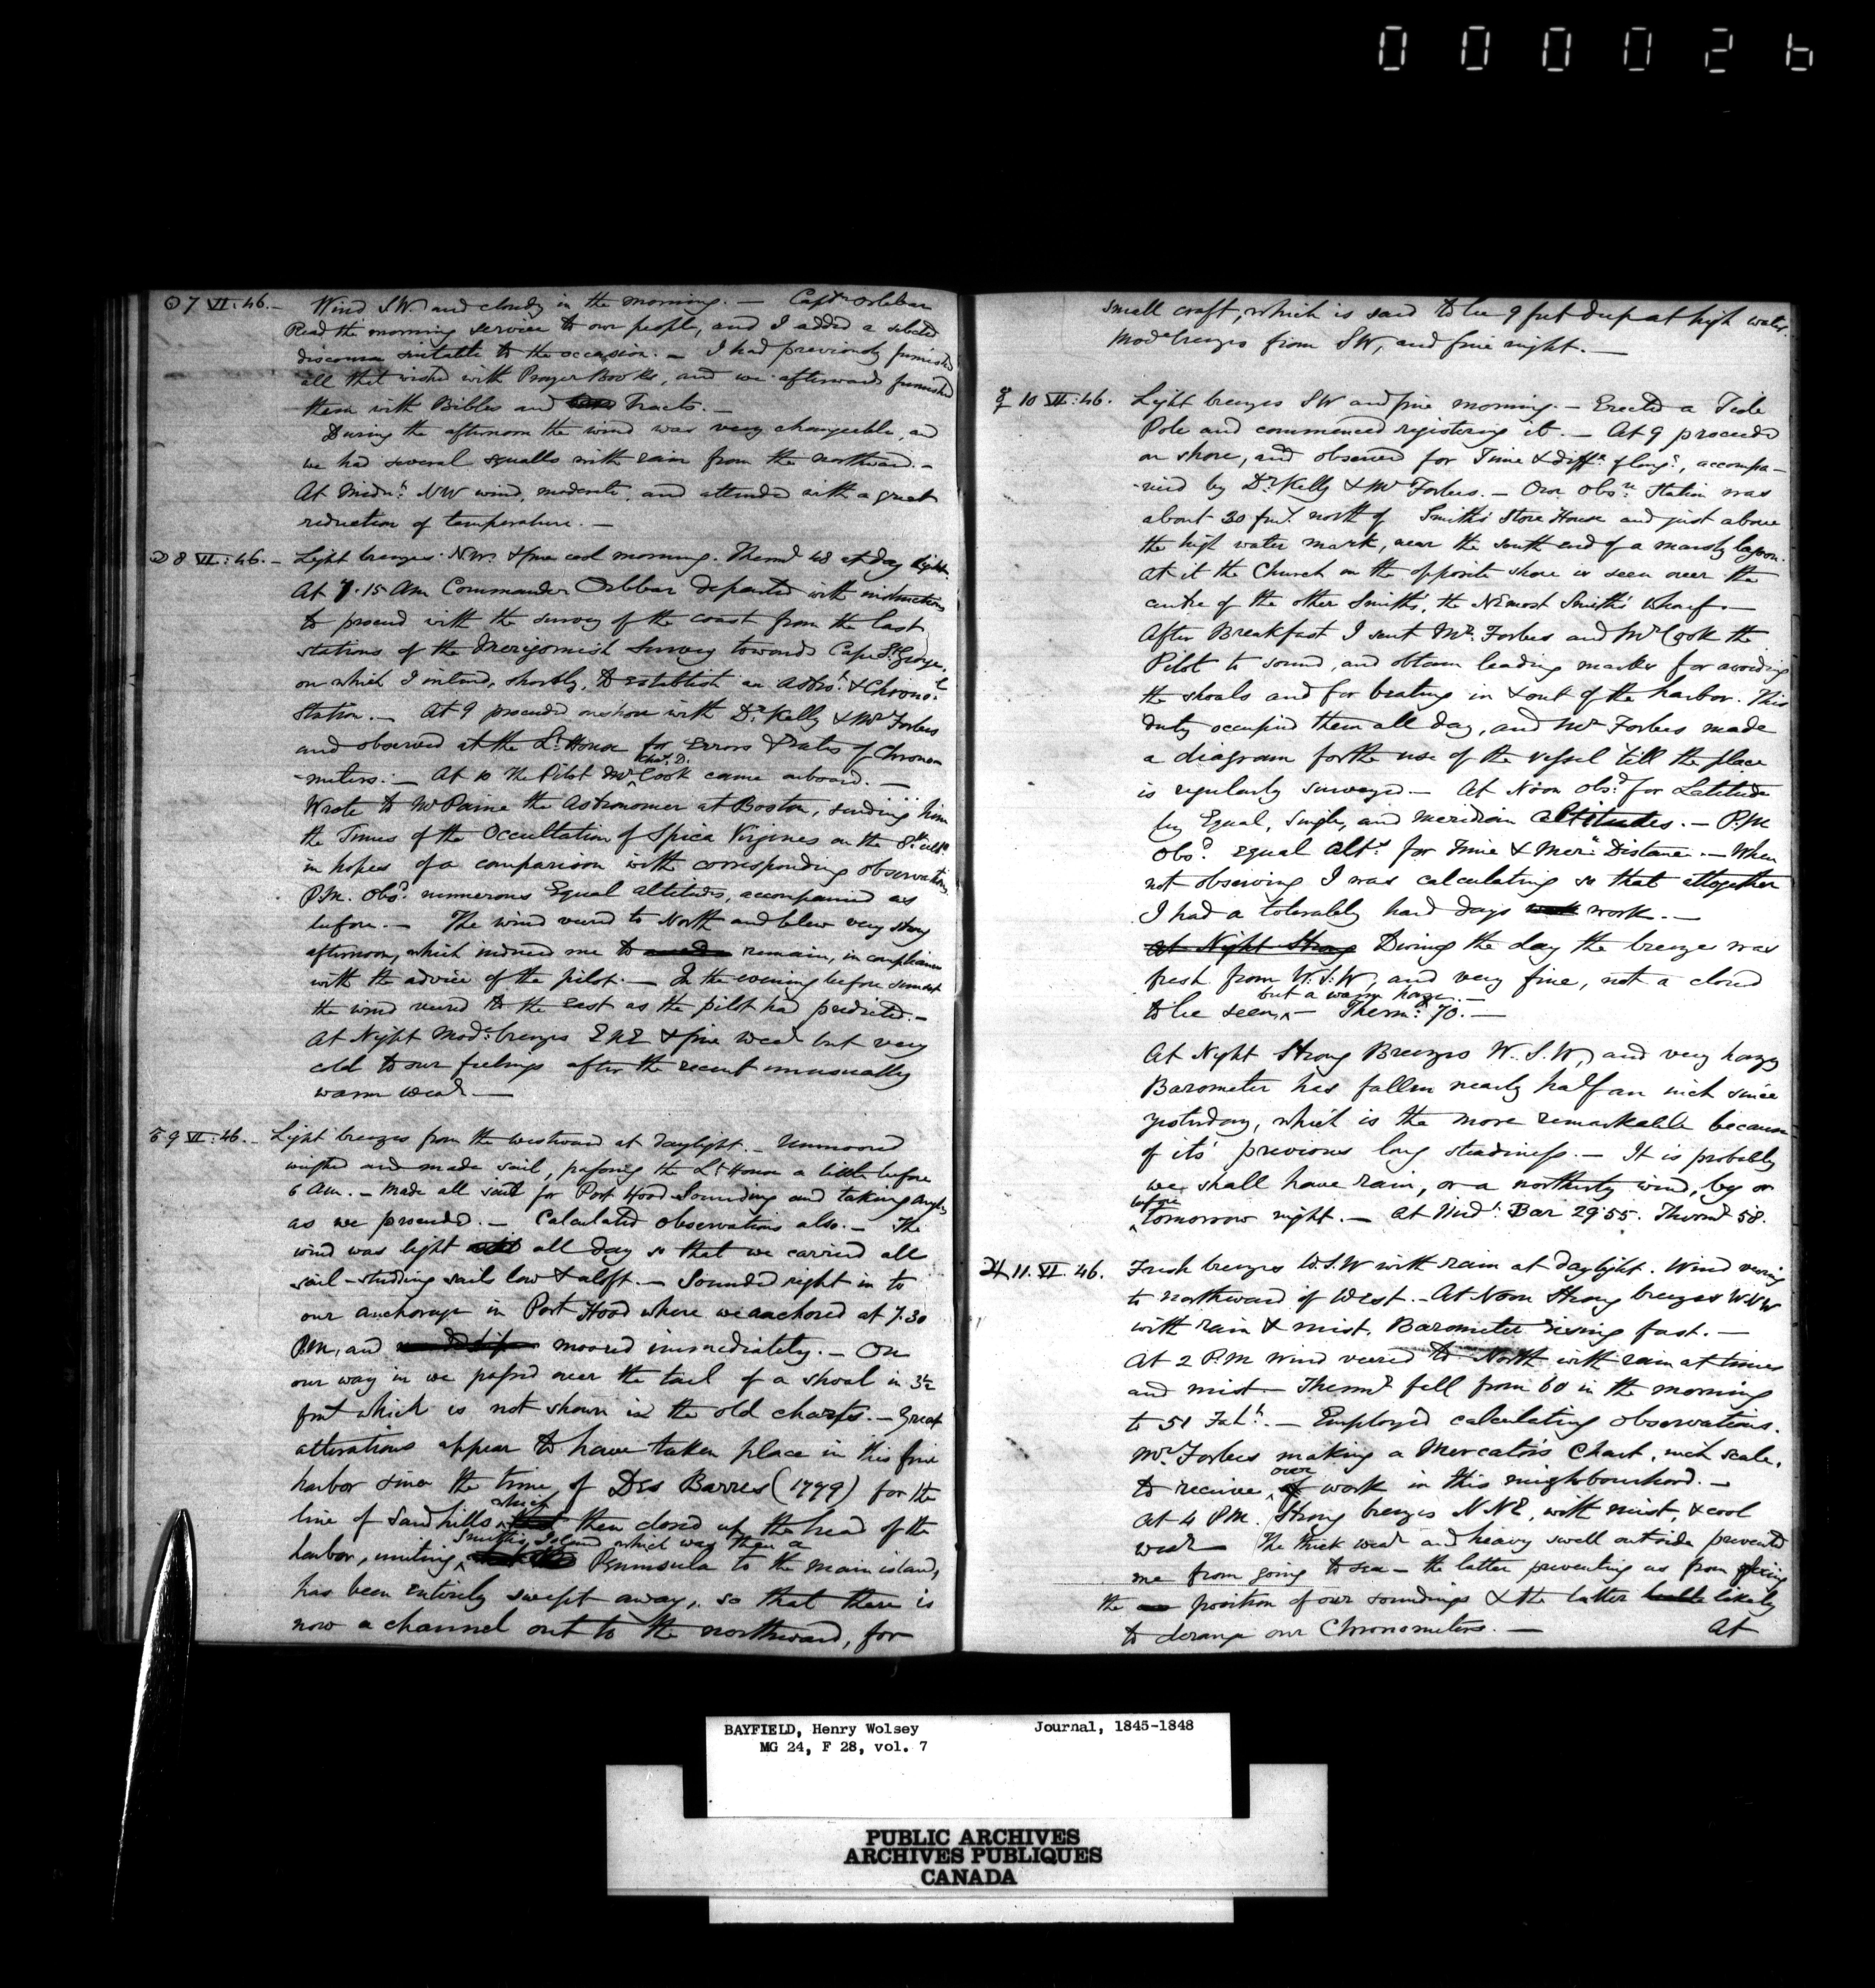 000026
☉ 7 VI: 46. — Wind S.W. and cloudy in the morning. — Captn Orlebar
Read the morning service to our people, and I added a selected
discourse suitable to the occasion. — I had previously furnished
all that wished with Prayer Books, and we afterwards furnished
them with Bibles and Tracts. —
During the afternoon the wind was very changeable, and
we had several squalls with rain from the northward. —
At Midnt. NW wind, moderate, and attended with a great
reduction of temperature. —
☽ 8 VI: 46. — Light breezes N.W. & fine cool morning. Thermr 48 at day light.
At 7.15 AM Commander Orlebar departed with instructions
to proceed with the survey of the coast from the last
stations of the Merigomish Survey towards Cape St. George,
on which I intend, shortly, to establish an Astrol. & Chronol.
Station. — At 9 proceeded on shore with Dr Kelly & Mr Forbes
and observed at the Lt. House for Errors & Rates of Chronom
-meters. — At 10 the Pilot Mr Cook came onboard. —
Wrote to Mr Paine the Astronomer at Boston, sending him
the Times of the Occultation of Spica Virginis on the 8th ulto.
in hopes of a comparison with corresponding observations.
P.M. Obsd. numerous Equal altitudes, accompanied as
before. — The wind veered to North and blew very strong
afternoon, which induced me to remain, in compliance
with the advice of the pilot. — In the evening before sunset
the wind veered to the East as the pilot had predicted. —
At Night Mode. breezes ENE & fine wear but very
cold to our feelings after the recent unusually
warm wear —
♂ 9 VI: 46. — Light breezes from the westward at daylight. — Unmoored
weighed and made sail, passing the Lt. House a little before
6 AM. — Made all sail for Port Hood Sounding and taking angles
as we proceeded. — Calculated observations also. — The
wind was light all day so that we carried all
sail — studding sails low & aloft. — Sounded right in to
our anchorage in Port Hood where we anchored at 7.30
P.M, and moored immediately. — On
our way in we passed over the tail of a shoal in 3½
fms which is not shown in the old charts. — Great
alterations appear to have taken place in this fine
harbor since the time of Des Barres (1779) for the
line of Sand hills which then closed up the head of the
harbor, uniting Smith's Island which was then a Peninsula to the main island,
has been entirely swept away, so that there is
now a channel out to the northward, for
small craft, which is said to be 9 feet deep at high water.
Mode breezes from SW, and fine night. —
☿ 10 VI: 46. Light breezes SW and fine morning. — Erected a Tide
Pole and commenced registering it. — At 9 proceeded
on shore, and observed for Time & diffe. of longe., accompa-
-nied by Dr Kelly & Mr Forbes. — Our Obsn. Station was
about 30 fms. north of Smith's Store House and just above
the high water mark, near the south end of a marshy lagoon.
At it the Church on the opposite shore is seen over the
centre of the other Smith's, the NEmost Smith's Wharf. —
After Breakfast I sent Mr. Forbes and Mr Cook the
Pilot to sound, and obtain leading marks for avoiding
the shoals and for beating in & out of the harbor. This
duty occupied them all day, and Mr Forbes made
a diagram for the use of the vessel till the place
is regularly surveyed — At Noon Obsd. for Latitude
by Equal, Single, and meridian altitudes. — P.M
Obsd. equal Alts. for Time & Mern. Distance. — When
not observing I was calculating so that altogether
I had a tolerably hard days work. —
At Night Strong During the day the breeze was
fresh from W.S.W, and very fine, not a cloud
to be seen, but a warm haze. — Thermr. 70. —
At Night Strong Breezes W.S.W, and very hazy
Barometer has fallen nearly half an inch since
yesterday, which is the more remarkable because
of its' previous long steadiness. — It is probably
we shall have rain, or a northerly wind, by or
before tomorrow night. — At Midt. Bar 29.55. Thermr 58.
♃ 11. VI. 46. Fresh breezes W.S.W with rain at daylight. Wind veering
to northward of West. — At Noon Strong breezes WNW
with rain & mist, Barometer rising fast. —
At 2 P.M Wind veered to North with rain at times
and mist — Thermr fell from 60 in the morning
to 51 Faht. — Employed calculating observations.
Mr Forbes making a Mercator's Chart, inch scale,
to receive our work in this neighbourhood. —
At 4 P.M. Strong breezes NNE, with mist, & cool
wear — The thick wear and heavy swell outside prevented
me from going to sea — the latter preventing us from fixing
the position of our soundings & the latter likely
to derange our Chronometers. — At
BAYFIELD, Henry Wolsey Journal, 1845-1848
MG 24, F 28, vol. 7
PUBLIC ARCHIVES
ARCHIVES PUBLIQUES
CANADA